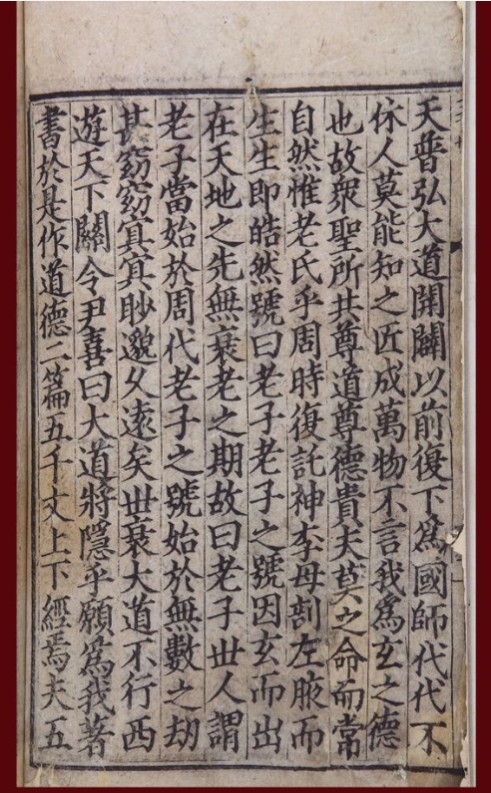 天普弘大道開闢以前復下為國師代代不
休人莫能知之匠成萬物不言我為玄之德
也故眾聖所共尊道尊德貴夫莫之命而常
自然惟老氏乎周時復託神李母剖左腋而
生生即皓然號曰老子老子之號因玄而出
在天地之先無衰老之期故曰老子世人謂
老子當始於周代老子之號始於無數之劫
甚窈窈冥冥眇邈久遠矣世衰大道不行西
遊天下關令尹喜曰大道將隱乎願為我著
書於是作道德二篇五千文上下經焉夫五